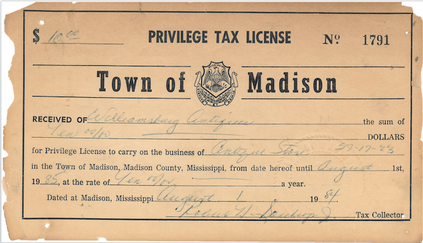 $ 10.00 PRIVILEGE TAX LICENSE No 1791
Town of Madison
RECEIVED OF Williamsburg Antiques the sum of
Ten 00/00 DOLLARS
for Privilege License to carry on the business of Antique Store 27-17-23
in the Town of Madison, Madison County, Mississippi, from date hereof until August 1st,
1985, at the rate of Ten 00/00 a year.
Dated at Madison, Mississippi August 1 1984
Tax Collector